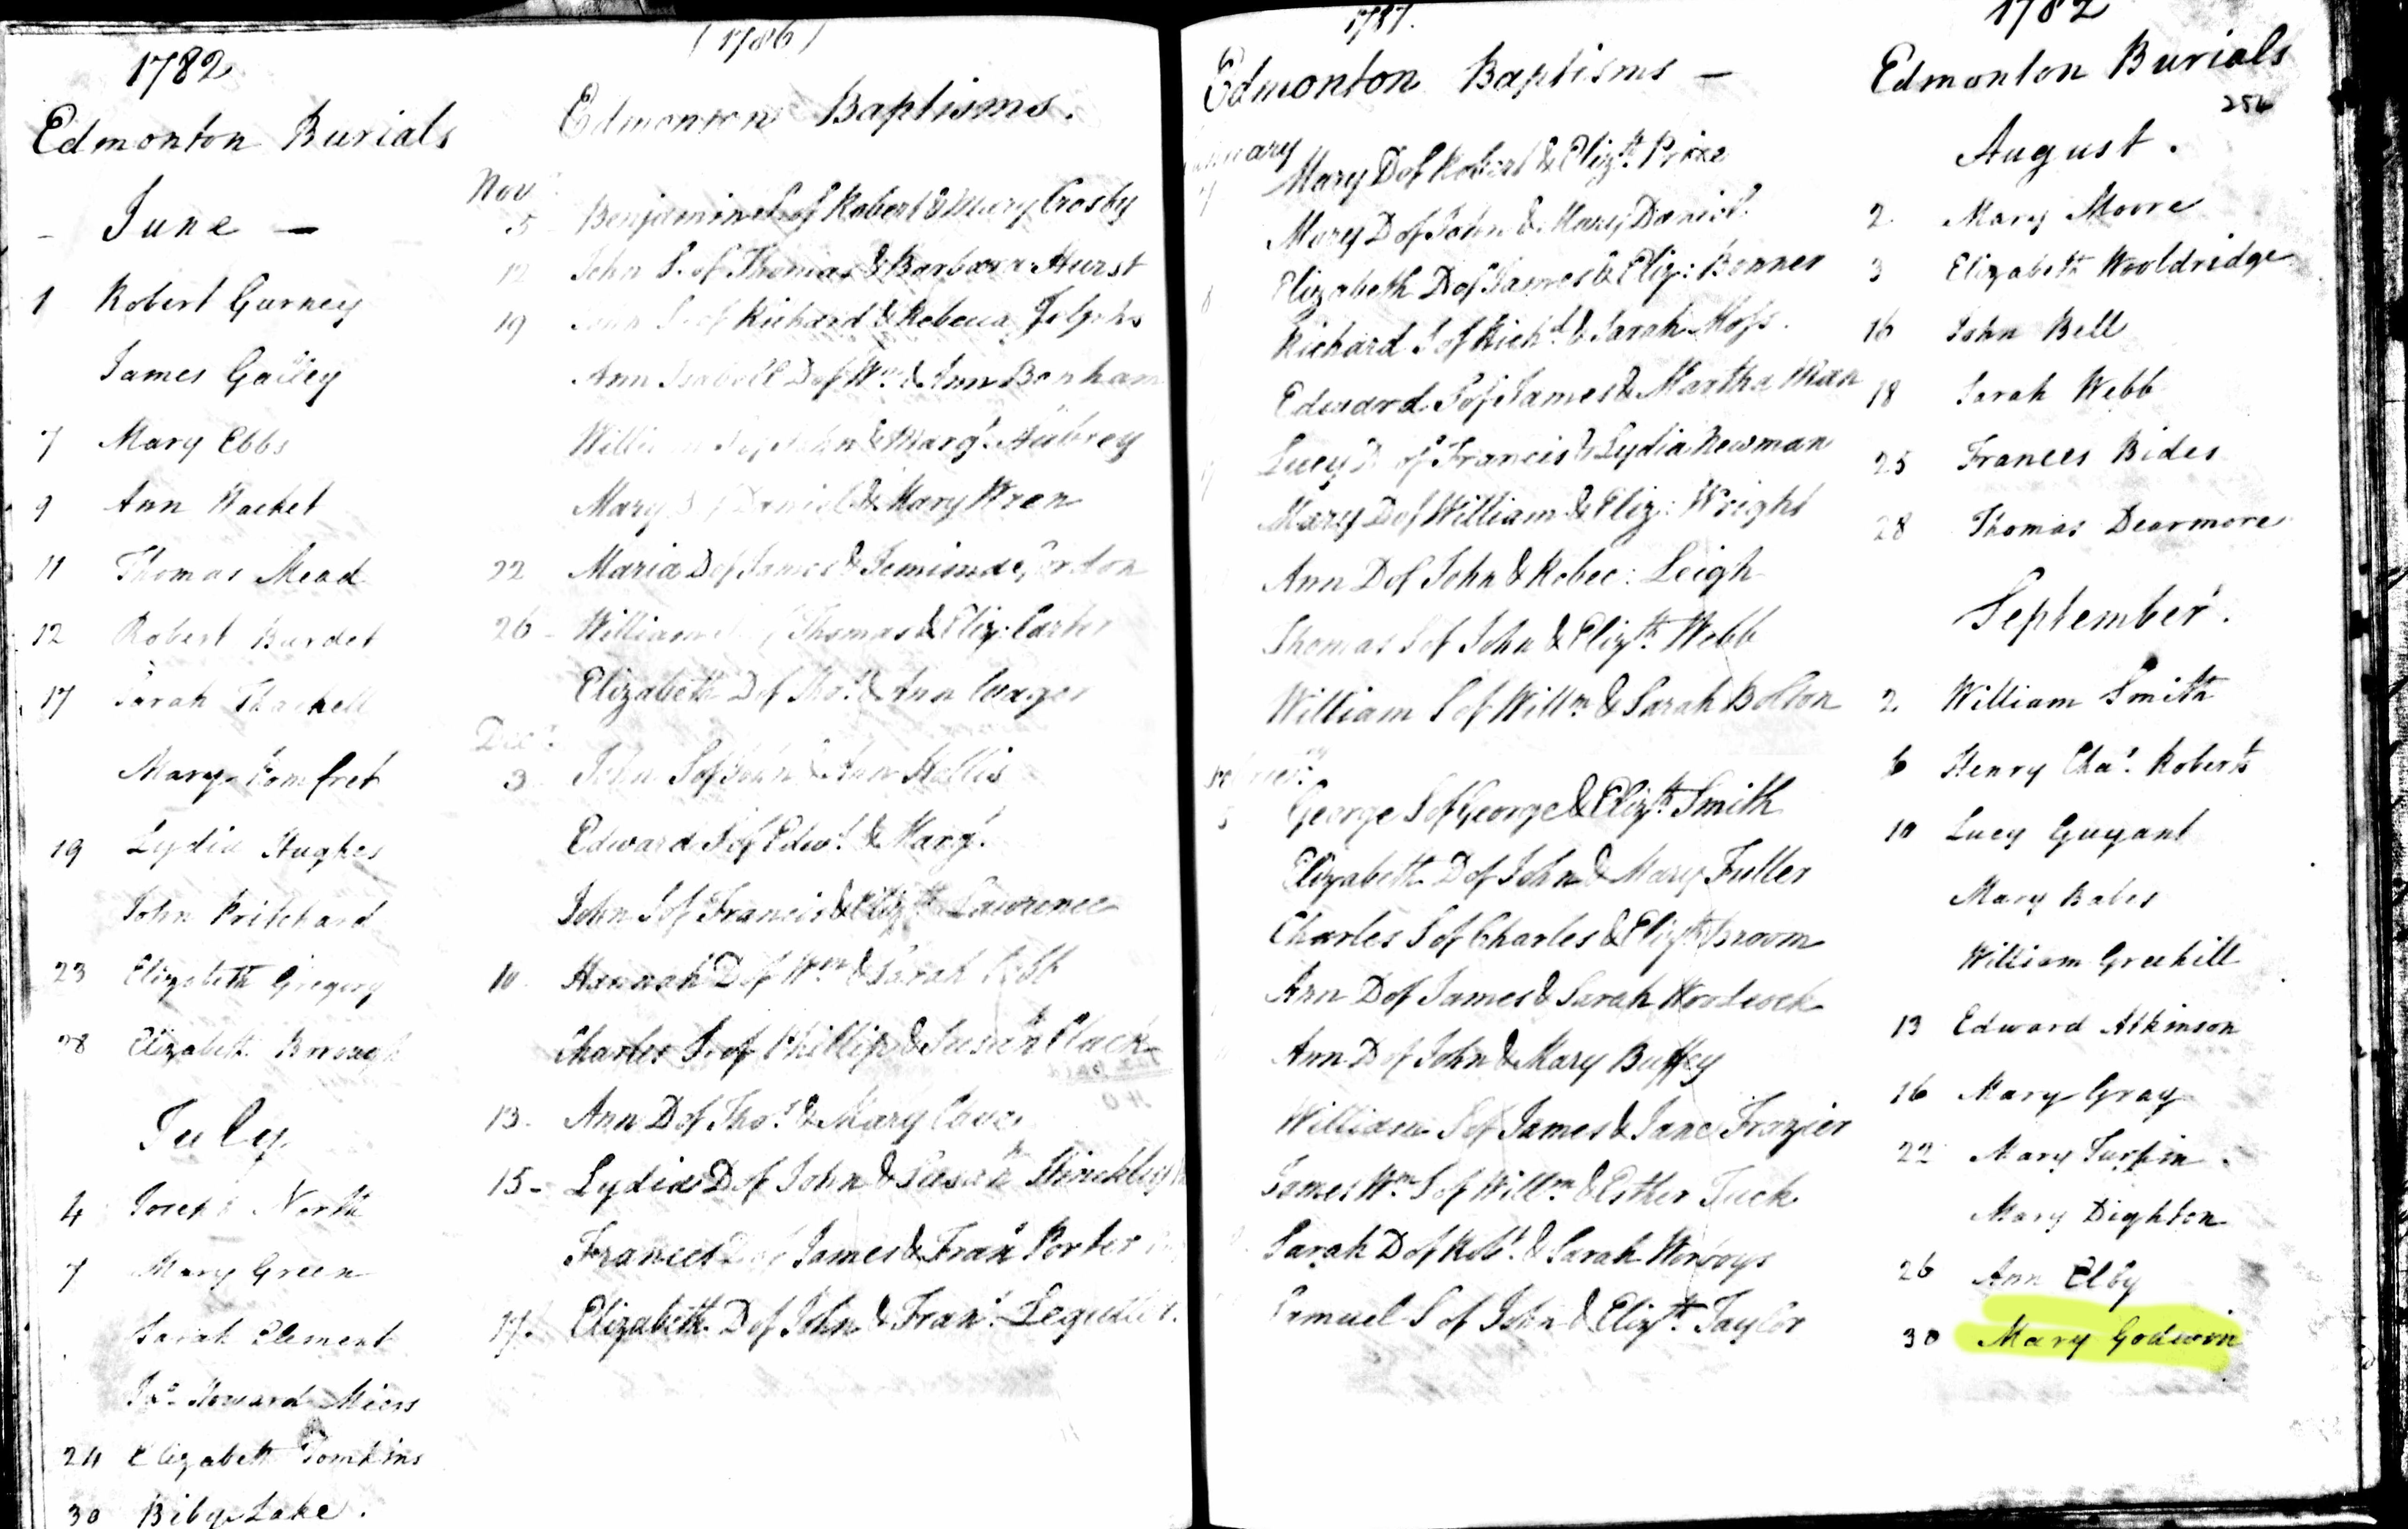 1782
Edmonton Burials
- June -
1 Robert Gurney
James Galley
7 Mary Ebbs
9 Ann Hacket
11 Thomas Mead
12 Robert Burdet
17 Sarah Thackell
Mary Pomfret
19 Lydia Hughes
John Pritchard
23 Elizabeth Gregory
28 Elizabeth
July
4 Joseph North
7 Mary Green
Sarah Element
Jno Howard Miers
24 Elizabeth Tomkins
30 Biby Lake.
(1786)
Edmonton Baptisms.
Novr
5 Benjamin S. of Robert & Mary Crosby
12 John S. of Thomas & Barbara Hurst
19 John S. of Richard & Rebecca
Ann Isabell D of Wm & Ann Bonham
William S of John & Margt Aubrey
Mary D of Daniel & Mary Wren
22 Maria D of James & Jemima Gordon
26 - William S of Thomas & Eliz: Carter
Elizabeth D of Thos & Ann
Decr
3 John S of John & Ann Hollis
Edward S of Edwd & Margt
John S of Francis & Elizth Lawrence
10 Hannah D of Wm & Sarah
Charles S. of Phillip & Susan Clack
13. Ann D of Thos & Mary
15 - Lydia D of John & Susan
Frances D of James & Fran Porter
17. Elizabeth D of John & Frans
1787.
Edmonton Baptisms -
7 Mary D of Robert & Elizth Price
Mary D of John & Mary Daniel
Elizabeth D of James & Eliz: Bonner
Richard S of Richd & Sarah Moss.
Edward S of James & Martha Man
Lucy D of Francis & Lydia Newman
Mary D of William & Eliz: Wright
Ann D of John & Rebec: Leigh
Thomas S of John & Elizth Webb
William S of Willm & Sarah Bolton
George S of George & Elizth Smith
Elizabeth D of John & Mary Fuller
Charles S of Charles & Elizth Broom
Ann D of James & Sarah Woodcock
Ann D of John & Mary Buffey
William S of James & Jane Frazier
James Wm S of Willm & Esther Tuck
Sarah D of Robt & Sarah Worboys
Samuel S of John & Elizth Taylor
1782
Edmonton Burials
254
August.
2 Mary Moore
3 Elizabeth Wooldridge
16 John Bell
18 Sarah Webb
25 Frances Bides
28 Thomas Dearmore
September.
2 William Smith
6 Henry Chas. Roberts
10 Lucy Guyant
Mary Bates
William Greehill
13 Edward Atkinson
16 Mary Gray
22 Mary Turpin.
Mary Dighton
26 Ann Elby
30 Mary Godwin